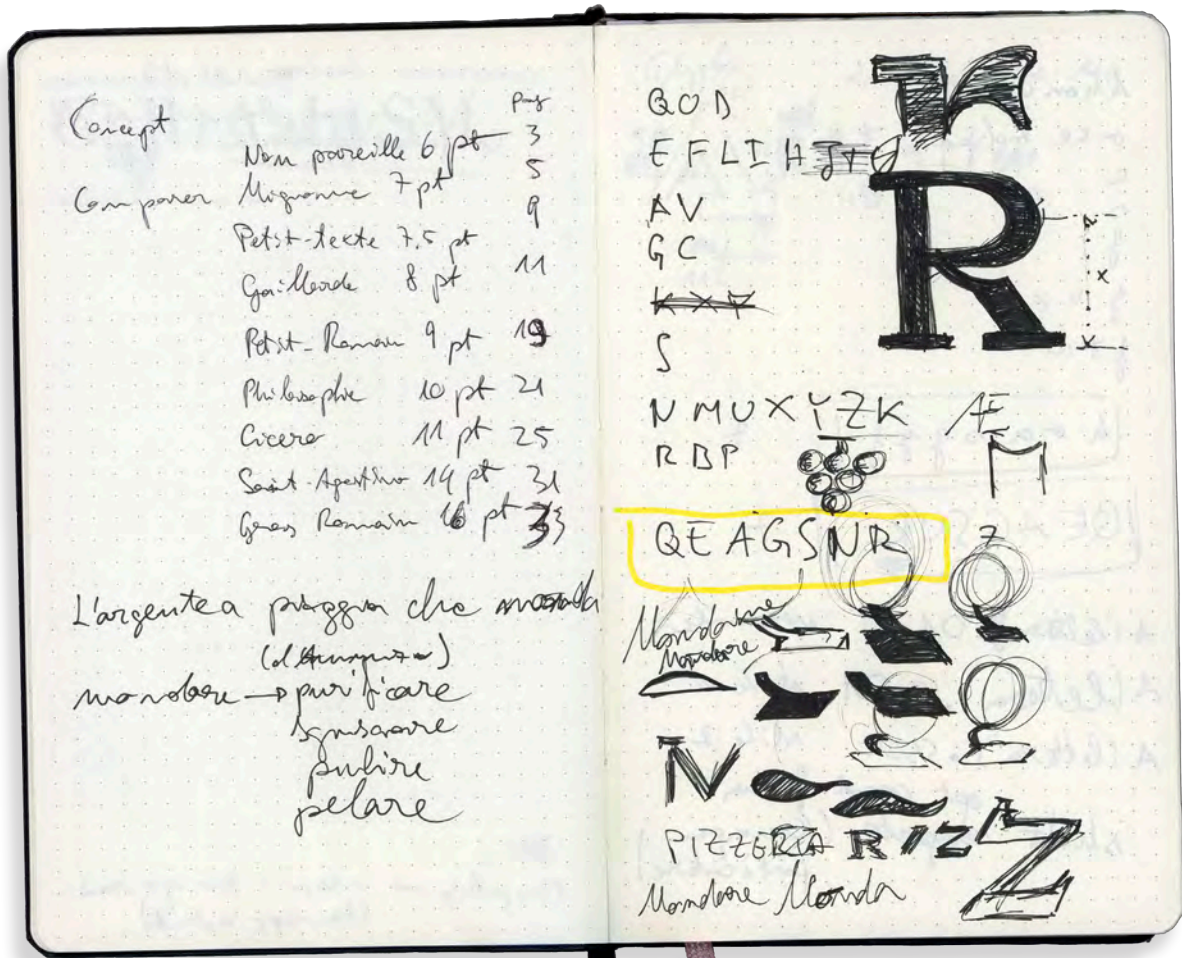 Concept
pag
Non pareille 6 pt 3
Comparer Mignonne 7 pt 5
Petit-texte 7,5 pt 9
Gaillarde 8 pt 11
Petit-Romain 9 pt 19
Philosophie 10 pt 21
Cicero 11 pt 25
Saint-Agostino 14 pt 31
Gros Romain 16 pt 33
L'argentea pioggia che monda
mondare → purificare
sgusciare
pulire
pelare
QOD
EFLIH
AV
GC
KXZ
S
NMUXYZK Æ
RBP M
QEAGSNR Z
Mondare
Mondare
N
PIZZERIA RIZ Z
Mondare Monda
R
R
x